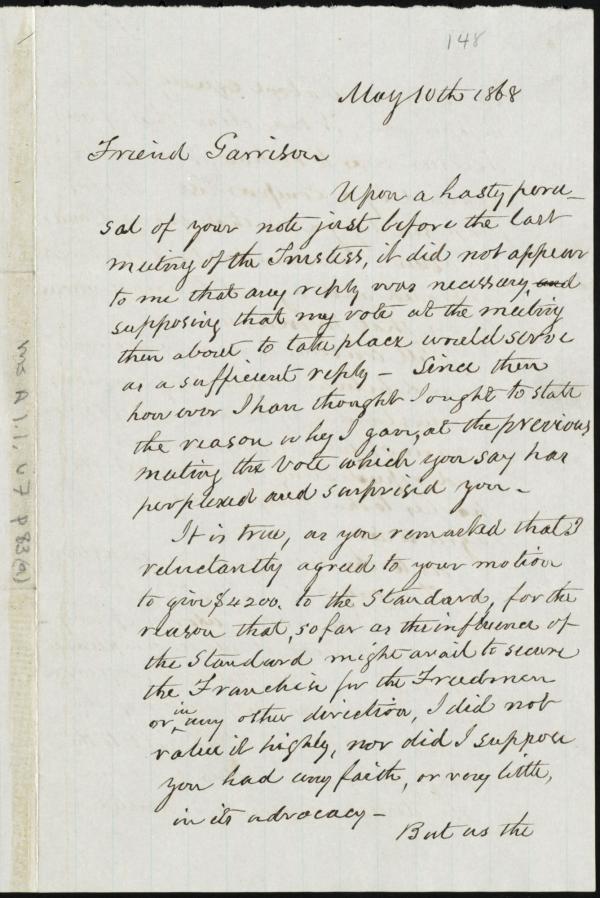 148
May 10th 1868
Friend Garrison
Upon a hasty peru-
sal of your note just before the last
meeting of the Trustess, it did not appear
to me that any reply was necessary, and
supposing that my vote at the meeting
then about to take place would serve
as a sufficient reply – Since then
how ever I have thought I ought to state
the reason why I gave, at the previous
meeting the vote which you say has
perplexed and surprised you –
It is true, as you remarked that I
reluctantly agreed to your motion
to give $4200. to the Standard, for the
reason that, so far as the influence of
the Standard might avail to secure
the Franchise for the Freedmen
or in any other direction, I did not
value it highly, nor did I suppose
you had any faith, or very little,
in its advocacy –
But as the
Ms A 1.1, v 7 p 83(a)